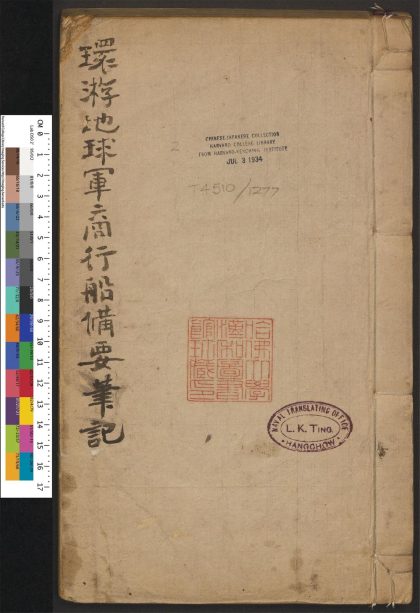 環游地球軍商行船備要筆記
CHINESE-JAPANESE COLLECTION
HARVARD COLLEGE LIBRARY
FROM HARVARD-YENCHING INSTITUTE
JUL 3 1934
2
T4510/1277
哈佛大學
漢和圖書
館珍藏印
NAVAL TRANSLATING OFFICE
L. K. TING.
HANGCHOW
CM 0 1 2 3 4 5 6 7 8 9 10 11 12 13 14 15 16 17